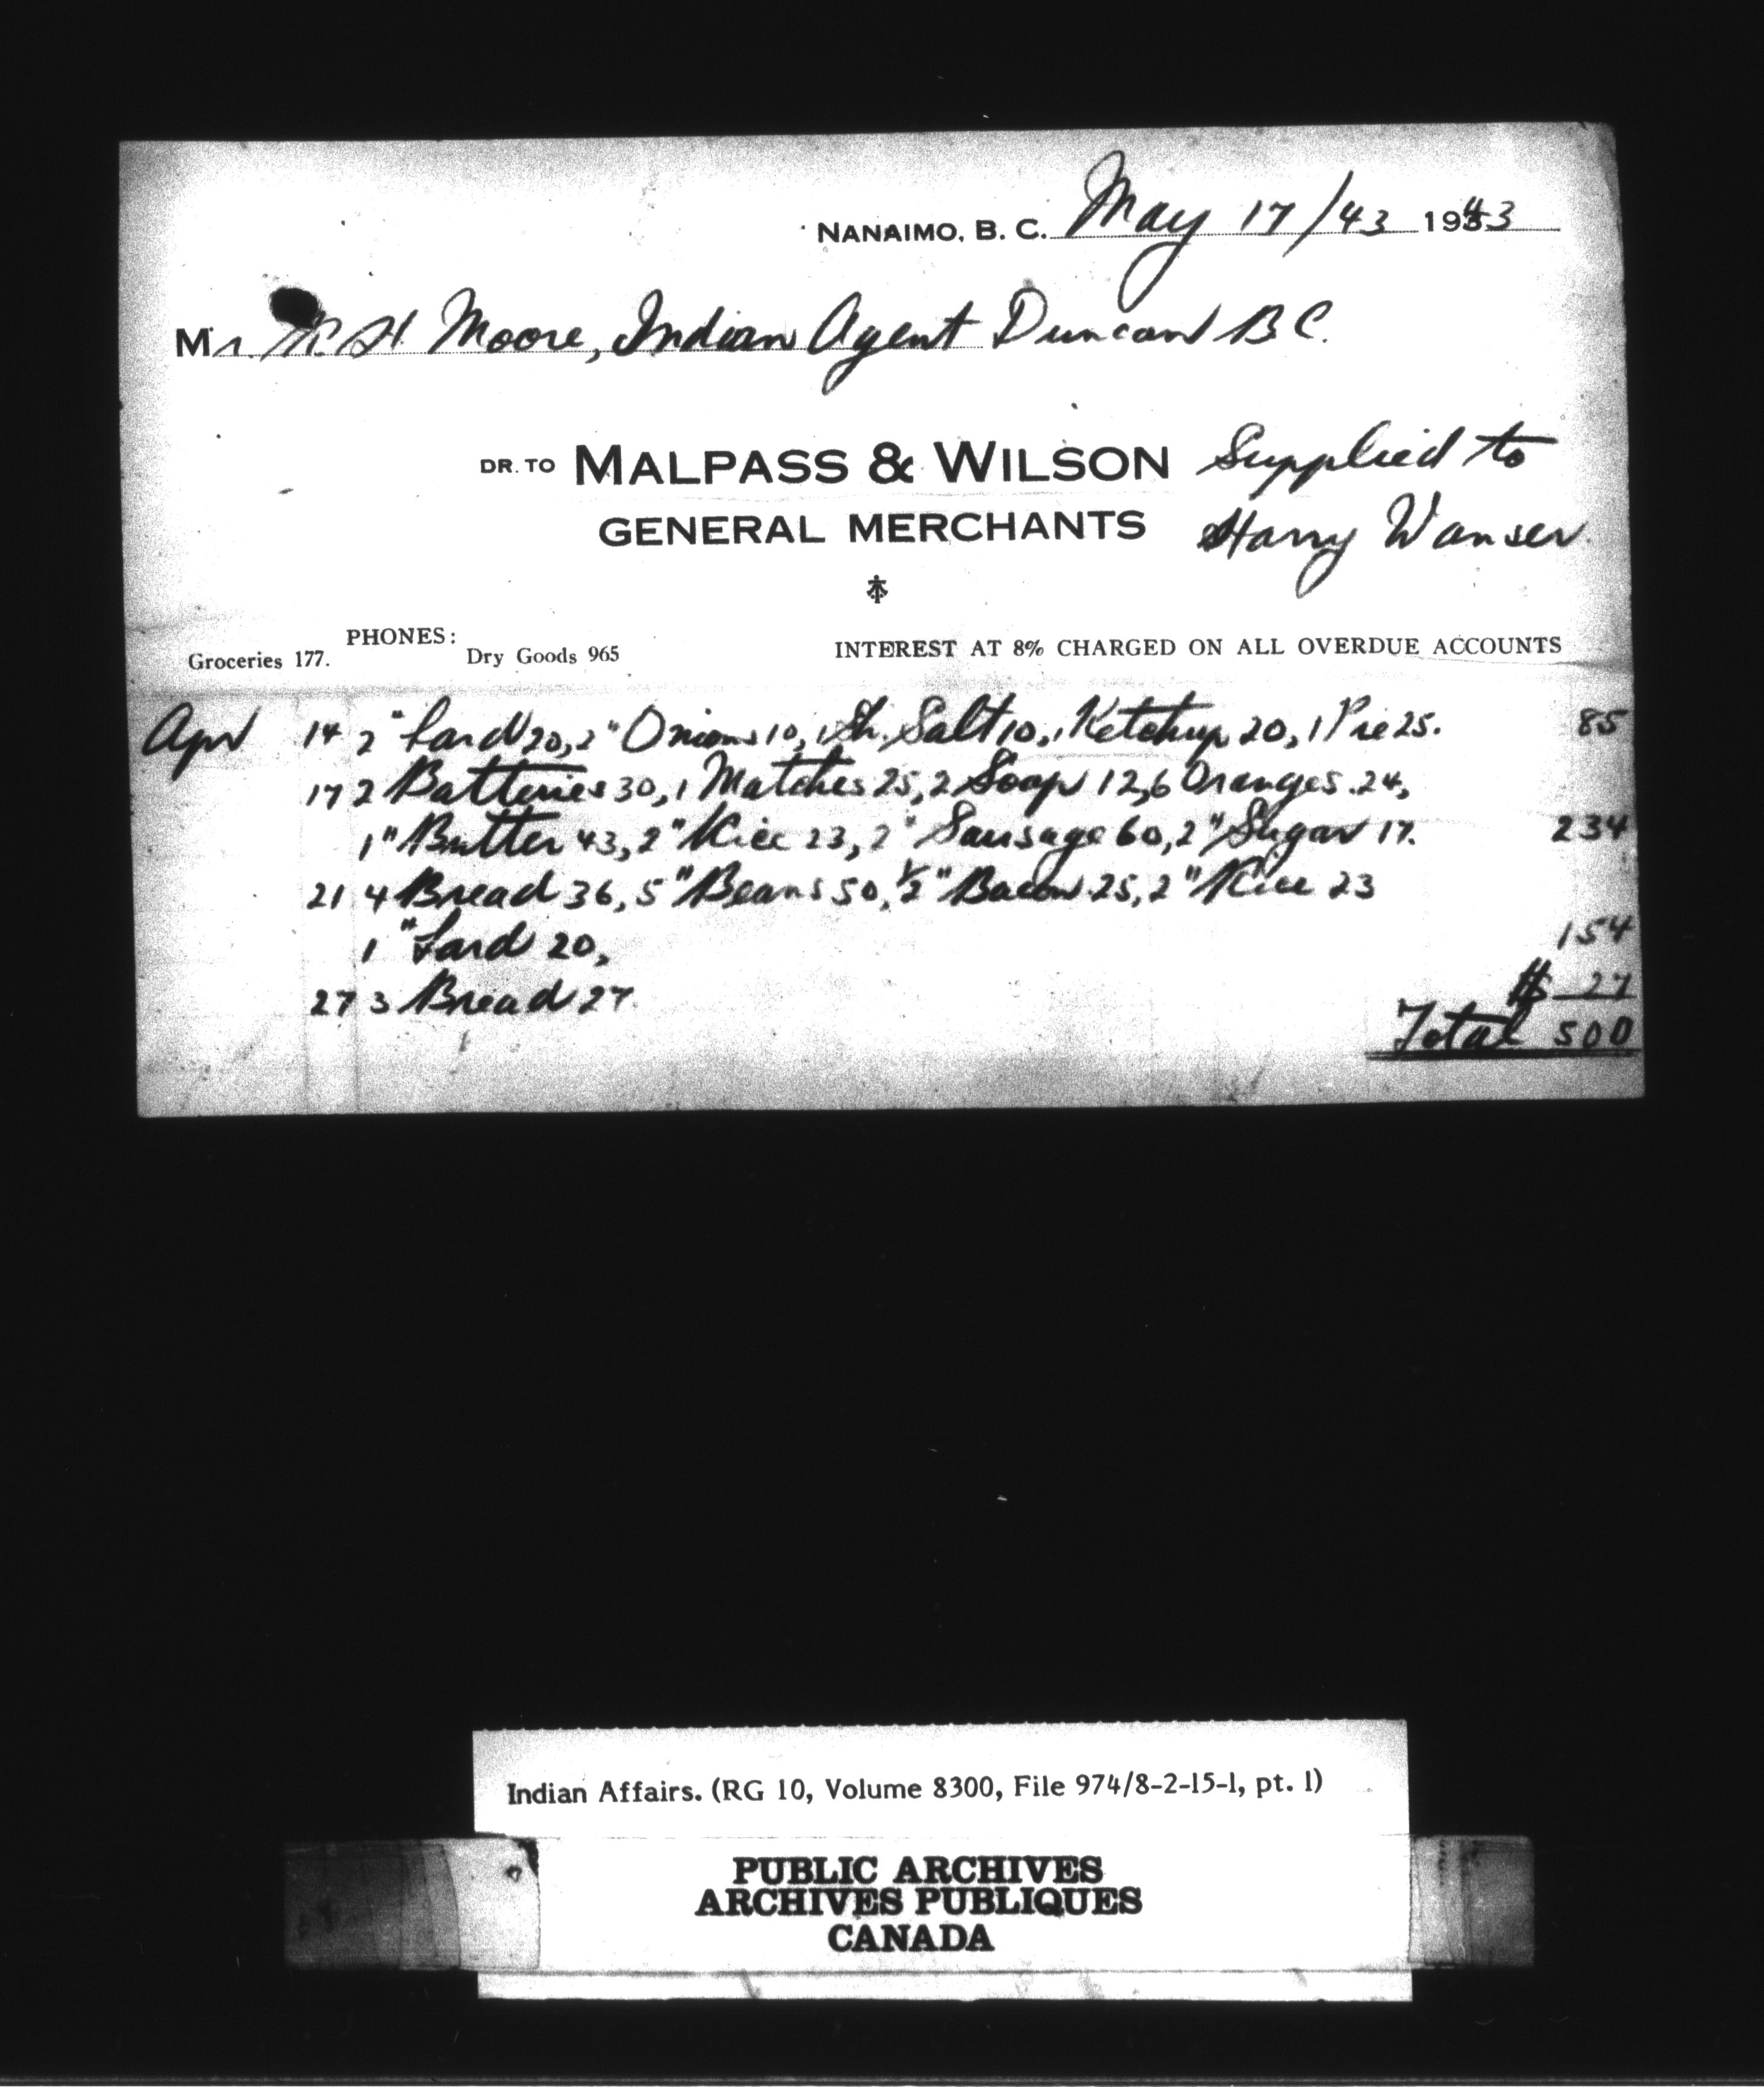 NANAIMO, B. C. May 17/43 1943
Mr. R. H. Moore, Indian Agent Duncan B C.
DR. TO MALPASS & WILSON Supplied to
GENERAL MERCHANTS Harry Wanser
PHONES:
Groceries 177. Dry Goods 965 INTEREST AT 8% CHARGED ON ALL OVERDUE ACCOUNTS
Apr 14 2 " Lard 20, 2 " Onions 10, 1 Sh. Salt 10, 1 Ketchup 20, 1 Pie 25. 85
17 2 Batteries 30, 1 Matches 25, 2 Soap 12, 6 Oranges 24,
1 " Butter 43, 2 " Rice 23, 2 " Sausage 60, 2 " Sugar 17. 234
21 4 Bread 36, 5 " Beans 50, 1/2 " Bacon 25, 2 " Rice 23
1 " Lard 20, 154
27 3 Bread 27. $ 27
Total 500
Indian Affairs. (RG 10, Volume 8300, File 974/8-2-15-1, pt. 1)
PUBLIC ARCHIVES
ARCHIVES PUBLIQUES
CANADA